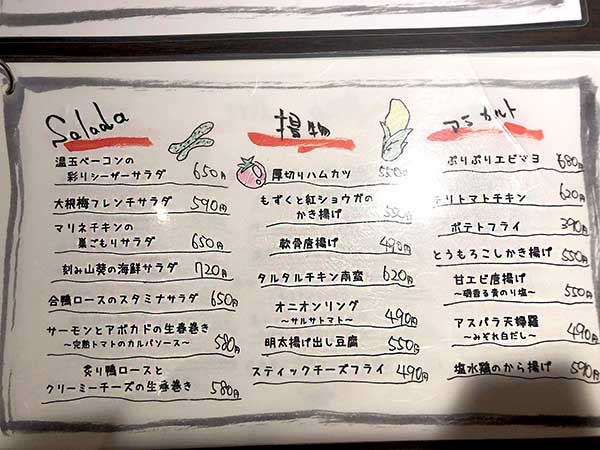 Salada
温玉ベーコンの
彩りシーザーサラダ 650円
大根梅フレンチサラダ 590円
マリネチキンの
巣ごもりサラダ 650円
刻み山葵の海鮮サラダ 720円
合鴨ロースのスタミナサラダ 650円
サーモンとアボカドの生春巻き
～完熟トマトのカルパソース～ 580円
炙り鴨ロースと
クリーミーチーズの生春巻き 580円
揚物
厚切りハムカツ 550円
もずくと紅ショウガの
かき揚げ 550円
軟骨唐揚げ 490円
タルタルチキン南蛮 620円
オニオンリング
～サルサトマト～ 490円
明太揚げ出し豆腐 550円
スティックチーズフライ 490円
アラカルト
ぷりぷりエビマヨ 680円
チリトマトチキン 620円
ポテトフライ 390円
とうもろこしかき揚げ 550円
甘エビ唐揚げ
～磯香る青のり塩～ 550円
アスパラ天婦羅
～みぞれ白だし～ 490円
塩水鶏のから揚げ 590円